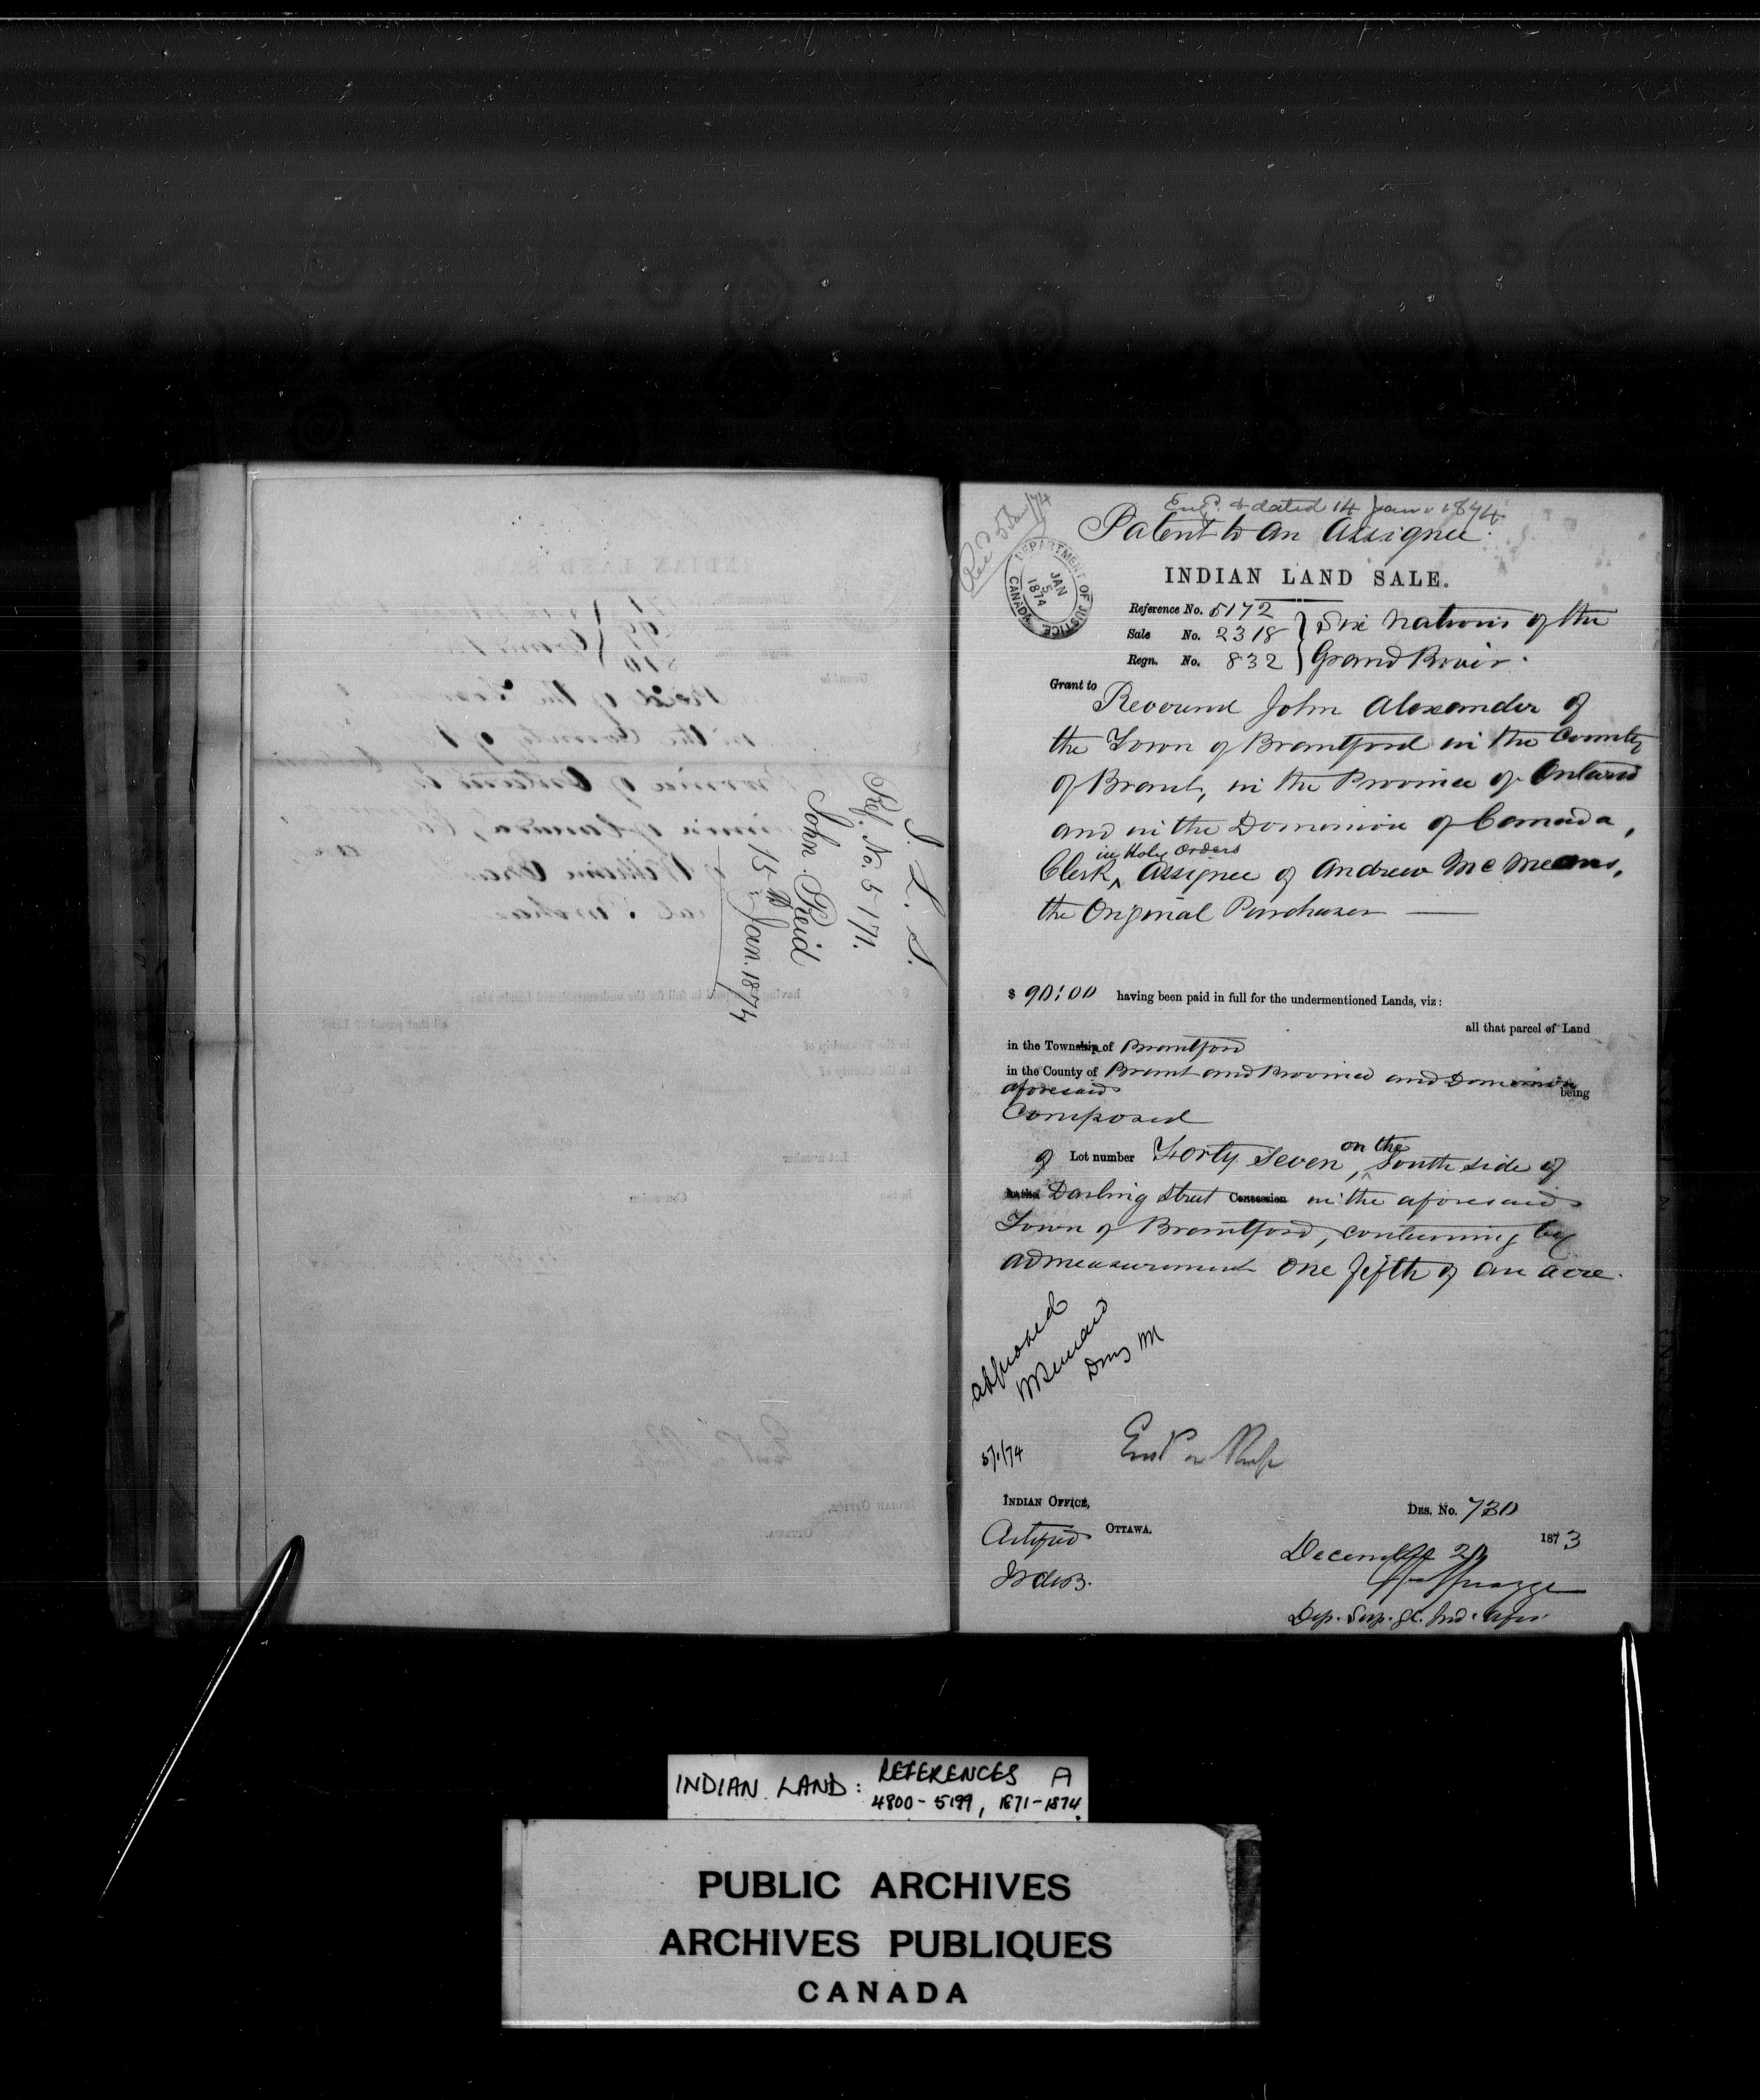 I. L. S.
Ref. No. 5171.
John Reid
15th Jan. 1874
Rec'd 5 Jan/74
Eng'd & dated 14 Jany 1874.
Patent to an Assignee.
DEPARTMENT OF JUSTICE CANADA
JAN 5 1874
INDIAN LAND SALE.
Reference No. 5172
Sale No. 2318
Regn. No. 832
Six Nations of the
Grand River.
Grant to
Reverend John Alexander of
the Town of Brantford in the County
of Brant, in the Province of Ontario
and in the Dominion of Canada,
in Holy Orders
Clerk ^ Assignee of Andrew McMeans,
the Original Purchaser
$ 90:00 having been paid in full for the undermentioned Lands, viz:
all that parcel of Land
in the Township of Brantford
in the County of Brant and Province and Dominion
aforesaid being
Composed
on the
of Lot number Forty Seven, ^ South side of
in the Darling Street Concession in the aforesaid
Town of Brantford, containing by
admeasurement One fifth of an acre.
approved
5/1/74
INDIAN OFFICE,
OTTAWA.
DES. No. 730
1873
December
Dep. Sup. Gl. Ind. Affrs.
INDIAN LAND: REFERENCES A
4800-5199, 1871-1874.
PUBLIC ARCHIVES
ARCHIVES PUBLIQUES
CANADA